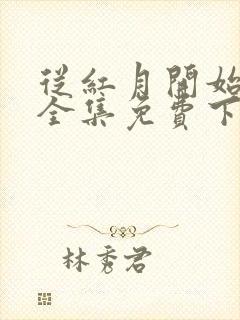 從紅月開始
全集免費下
林秀君